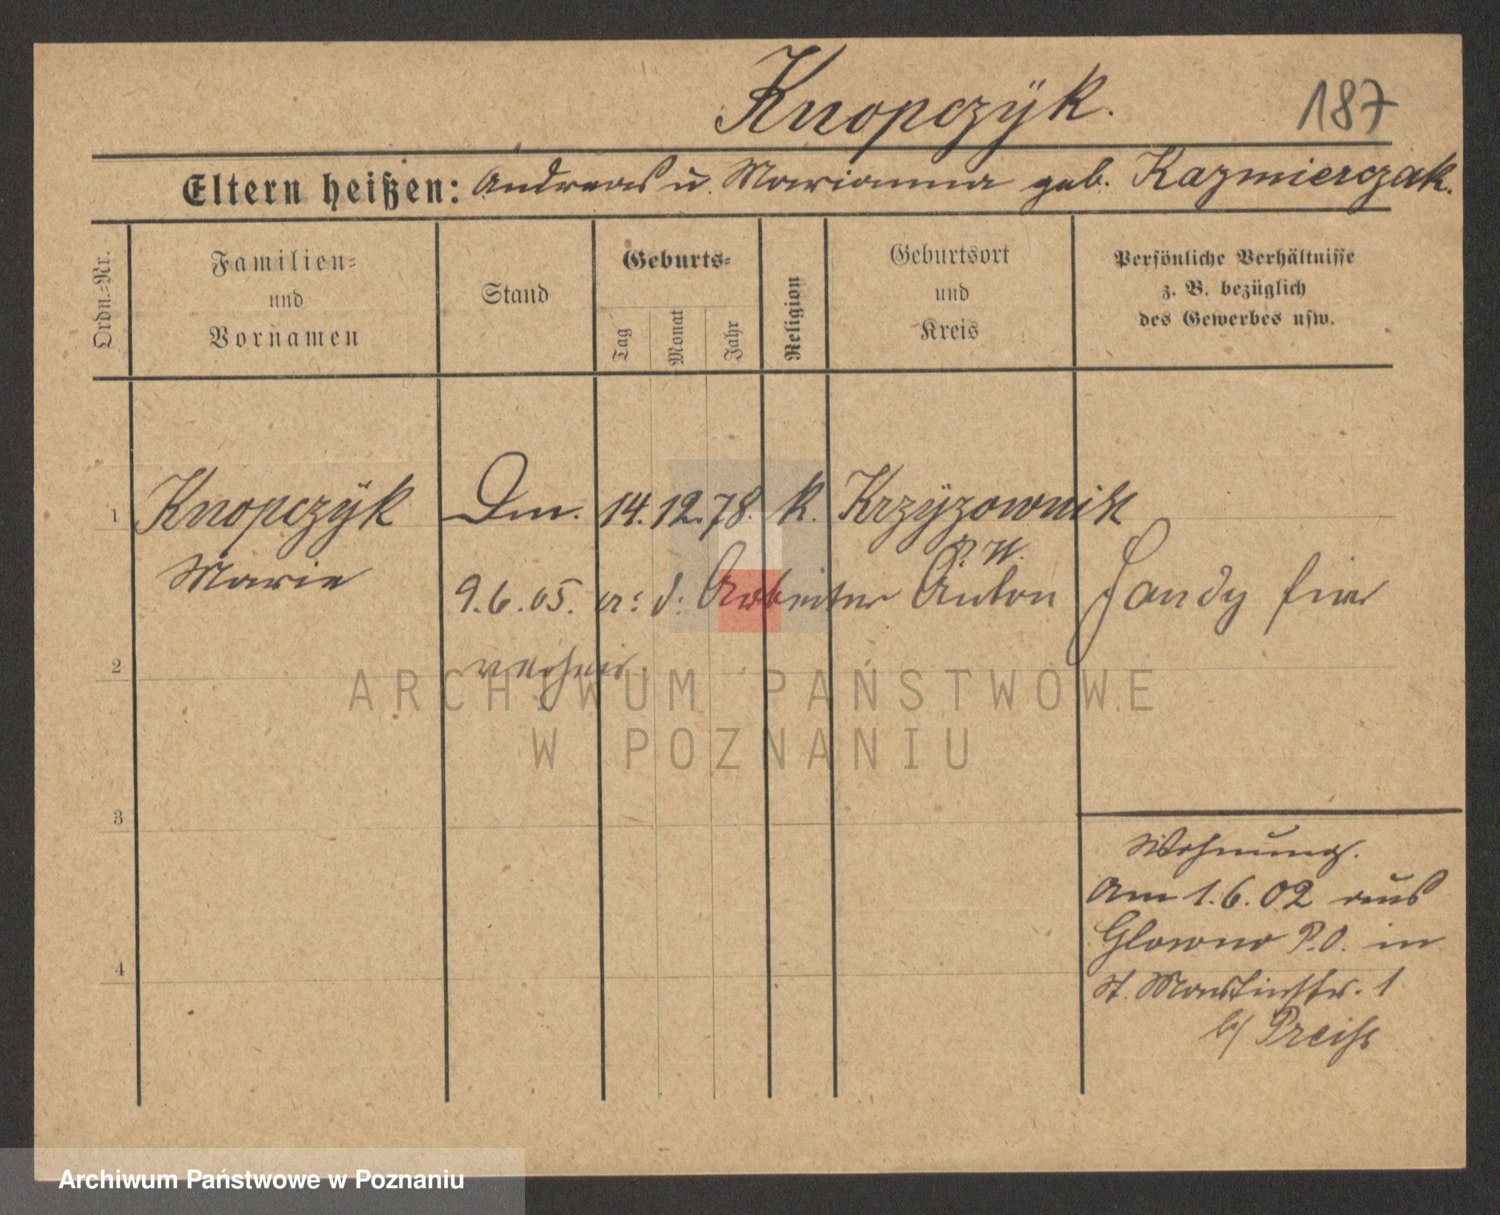 Knopczÿk.
187
Eltern heißen: Andreas u. Marianna geb. Kazmierczak.
Ordn.=Nr.
Familien=
und
Vornamen
Stand
Geburts=
Tag
Monat
Jahr
Religion
Geburtsort
und
Kreis
Persönliche Verhältnisse
z. B. bezüglich
des Gewerbes usw.
1 Knopczÿk Dm. 14. 12. 78. k. Krzÿzownik
Marie
P. W.
9. 6. 05. d. Arbeiter Anton hier
2
3
4
Wohnung.
Am 1. 6. 02 aus
Glowno P. O. in
St. Martinstr. 1
b/ Preiss
ARCHIWUM PAŃSTWOWE
W POZNANIU
Archiwum Państwowe w Poznaniu